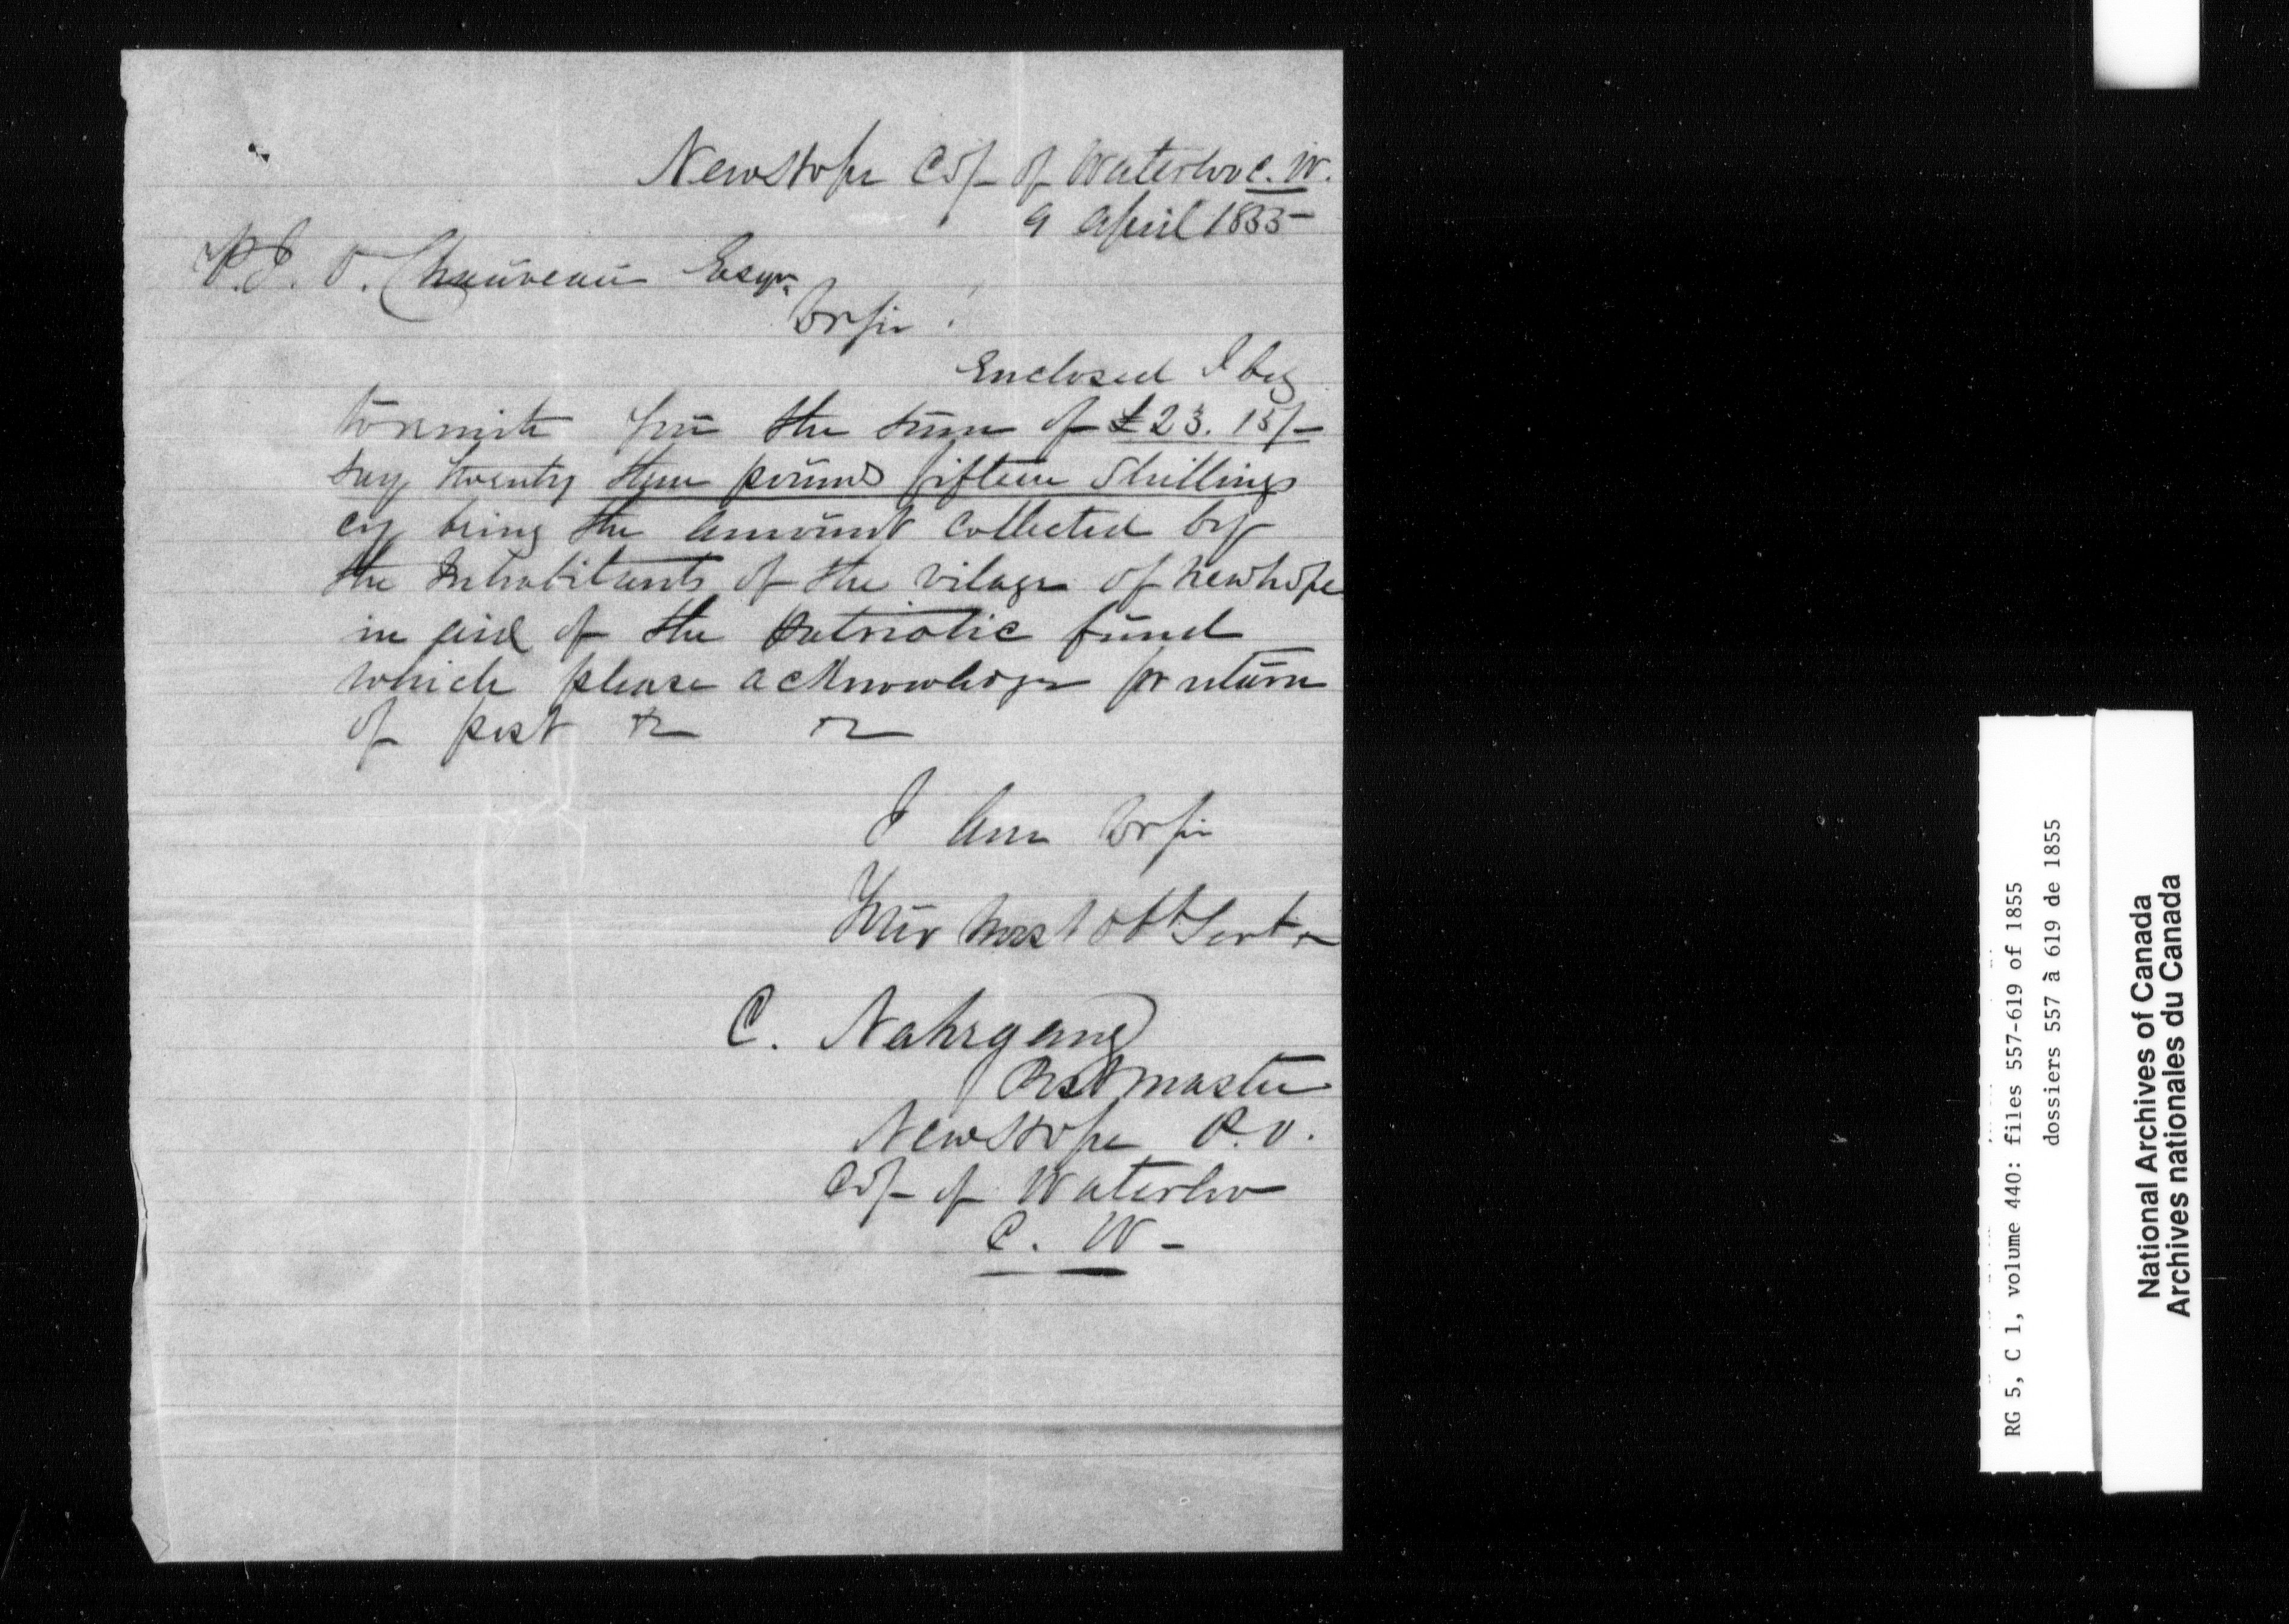 NewHope Co/- of Waterloo C.W.
9 April 1855-
P.J.O. Chauveau Esqr.
Dr Sir !
Enclosed I beg
to remitt you the sum of £23. 15/-
say twenty three pounds fifteen Shillings
cy being the amount collected by
the Inhabitants of the vilage of Newhope
in aid of the patriotic fund
which please acknowledge pr return
of post
I am Dr Sir
Your most obt Servt
C. Nahrgang
Postmaster
NewHope P.O.
Co/- of Waterloo
C. W -
RG 5, C 1, volume 440: files 557-619 of 1855
dossiers 557 à 619 de 1855
National Archives of Canada
Archives nationales du Canada